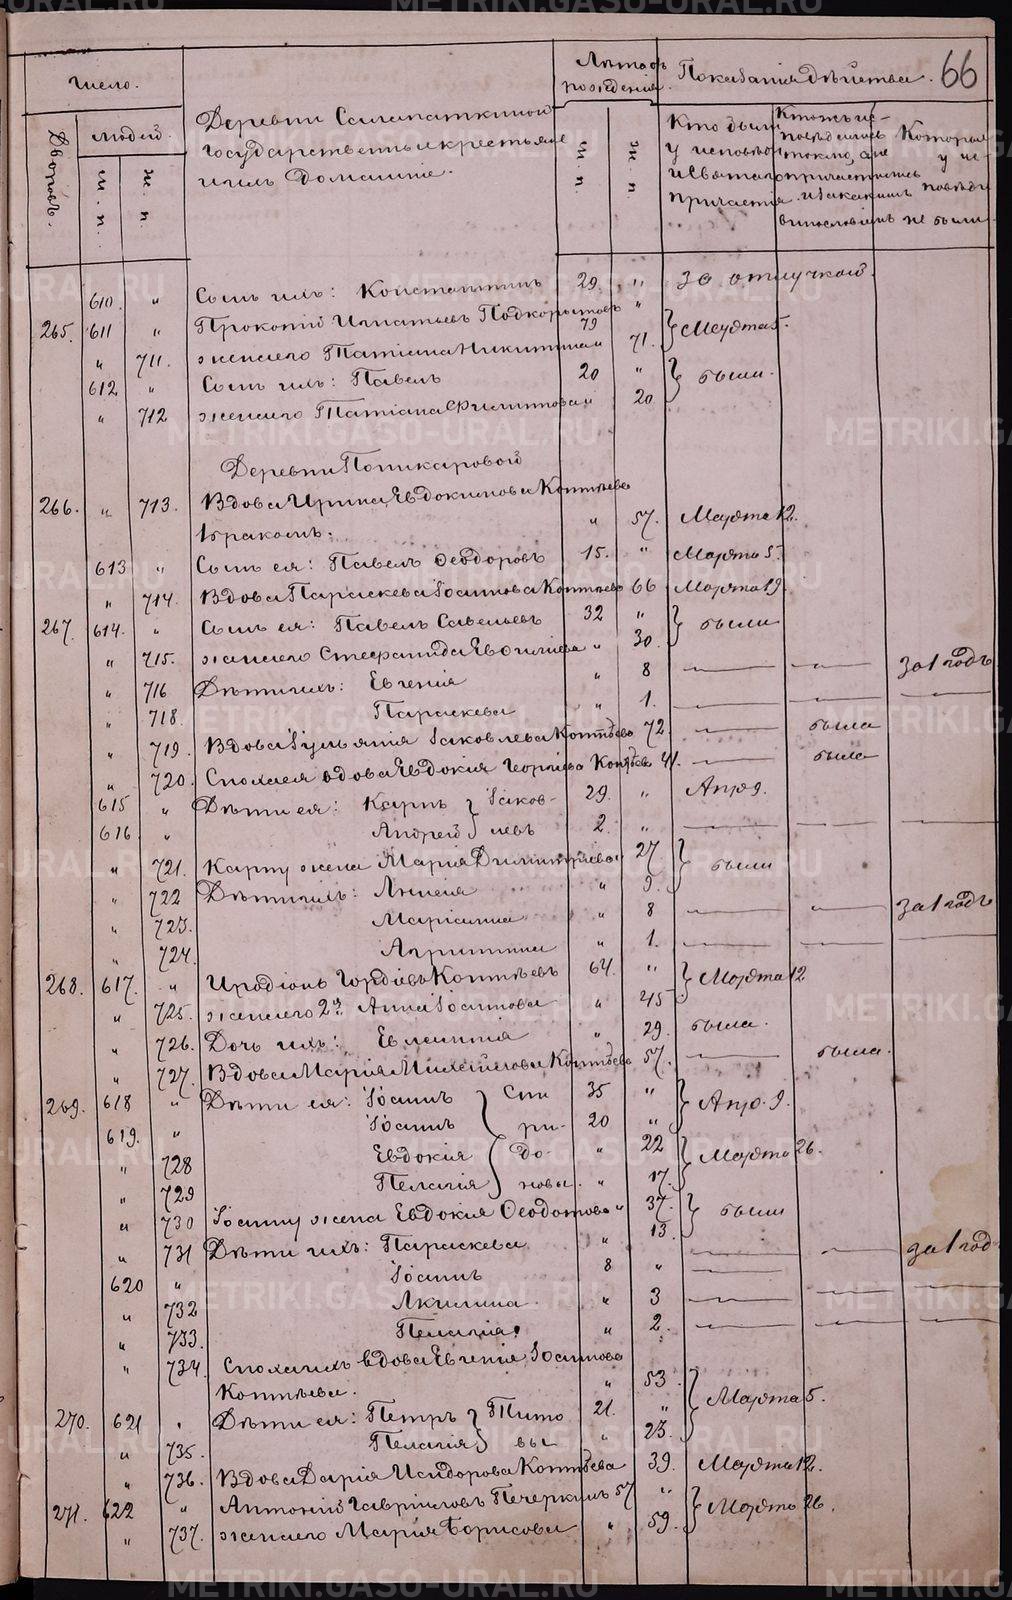 66
Число.
Деревни
государственные крестьяне
и ихъ домашніе.
Лѣта отъ рожденія.
Показанія дѣйства.
Дворовъ.
Людей.
м. п.
ж. п.
м. п.
ж. п.
Кто были у исповѣди и Святаго причастія
Кто же исповѣдались токмо, а не причастились и за какимъ винословіемъ
Которые у исповѣди не были
610. " Сынъ ихъ: Константинъ 29. " За отлучкой.
265. 611 " Прокопій Игнатьевъ Подкорытовъ 79 " Марта 5.
" 711. жена его Татіана Никитина " 71.
612 " Сынъ ихъ: Павелъ 20 " были.
" 712 жена его Татіана Филиппова " 20
Деревни Поликаровой
266. " 713. Вдова Ирина Евдокимова Коптѣева
1 бракомъ. " 57. Марта 12.
613 " Сынъ ея: Павелъ Ѳеодоровъ 15. " Марта 5.
" 714. Вдова Параскева Іоаннова Коптѣева 66 Марта 19.
267. 614. " Сынъ ея: Павелъ Савельевъ 32 " были
" 715. жена его Стефанида Евсигніева " 30.
" 716 Дѣти ихъ: Евгенія " 8 — — за 1 годъ
" 718. Параскева " 1. — — —
" 719. Вдова Іульянія Іаковлева Коптѣева 72. — была
" 720. Сноха ея вдова Евдокія Георгіева Коптѣева 41. — была
615 " Дѣти ея: Карпъ } Іаков- 29. " Апр. 9.
616. " Андрей } левы 2. " — — —
" 721. Карпу жена Марія Димитріева " 27 были
" 722 Дѣти ихъ: Лукія " 9.
" 723. Маріанна " 8 — — за 1 годъ
" 724. Агриппина " 1. — — —
268. 617. " Иродіонъ Гордіевъ Коптѣевъ 64. " Марта 12
" 725. жена его 2я Анна Іоаннова " 45
" 726. Дочь ихъ: Евлампія " 29. была.
" 727. Вдова Марія Михайлова Коптѣева 57. — была.
269. 618 " Дѣти ея: Іоаннъ } Спи 35 " Апр. 9.
619. " Іоаннъ } ри- 20 "
" 728 Евдокія } до- " 22 Марта 26.
" 729 Пелагія } новы. " 17.
" 730 Іоанну жена Евдокія Ѳеодотова " 37. были
" 731 Дѣти ихъ: Параскева " 13.
620 " Іоаннъ 8 " — — за 1 год
" 732 Акилина. " 3 — — —
" 733. Пелагія. " 2. — — —
" 734. Сноха ихъ вдова Евгенія Іоаннова
Коптѣева. " 53 Марта 5.
270. 621 " Дѣти ея: Петръ } Тито 21. "
" 735. Пелагія } вы " 23.
" 736. Вдова Дарія Исидорова Коптѣева 39. Марта 12.
271. 622 " Антоній Гавріиловъ Печеркинъ 57 " Марта 26.
" 737. жена его Марія Борисова " 59.
METRIKI.GASO-URAL.RU